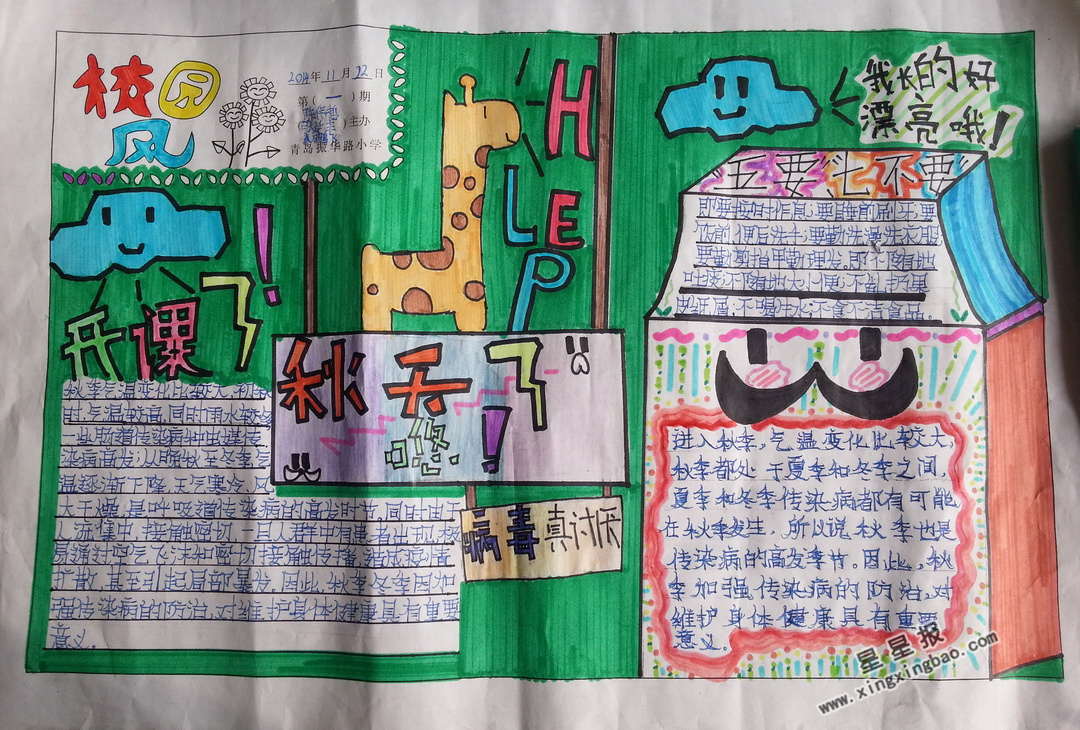 校园风
2014年11月12日
第(一)期
主办
青岛振华路小学
HELP
我长的好
漂亮哦!
五要七不要
即要按时作息;要睡前刷牙;要
饭前便后洗手;要勤洗澡洗衣服
要勤剪指甲勤理发。即不随地
吐痰;不随地大小便;不乱扔果
皮纸屑;不喝生水;不食不洁食品。
开课了!
秋季气温变化比较大,初秋
时,气温较高,同时雨水较多
一些肠道传染病
染病高发;从晚秋至冬季气
温逐渐下降,天气寒冷,风
大干燥,是呼吸道传染病的高发时节,同时由于
人流集中,接触密切,一旦人群中有患者出现,极
易通过空气飞沫和密切接触传播,造成疫情
扩散,甚至引起局部暴发。因此,秋季冬季因加
强传染病的防治,对维护身体健康具有重要
意义。
秋天了!
病毒真讨厌
进入秋季,气温变化比较大,
秋季都处于夏季和冬季之间,
夏季和冬季传染病都有可能
在秋季发生,所以说秋季也是
传染病的高发季节。因此,秋
季加强传染病的防治,对
维护身体健康具有重要
意义。
星星报
www.xingxingbao.com